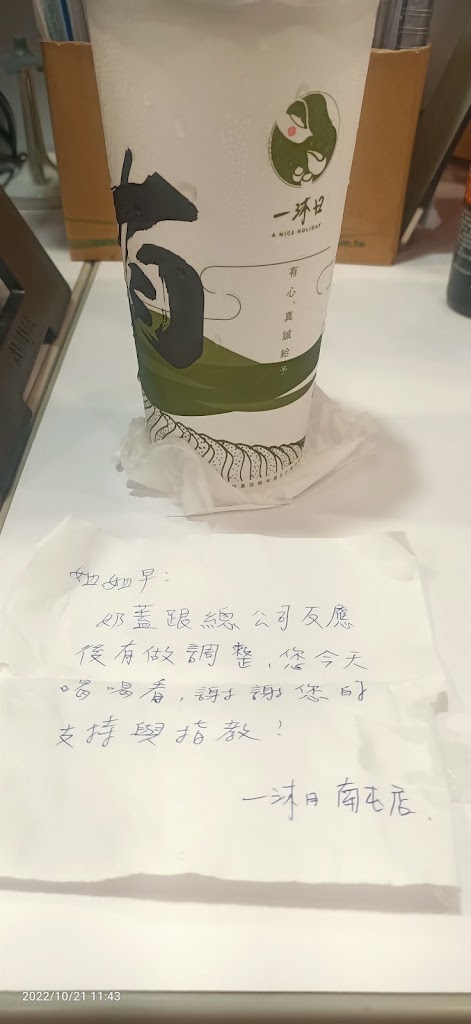 一沐日
A NICE HOLIDAY
有心,真誠給予
.com.tw
奶蓋跟總公司反應
後有做調整,您今天
喝喝看,謝謝您的
支持與指教!
一沐日 南屯店.
2022/10/21 11:43